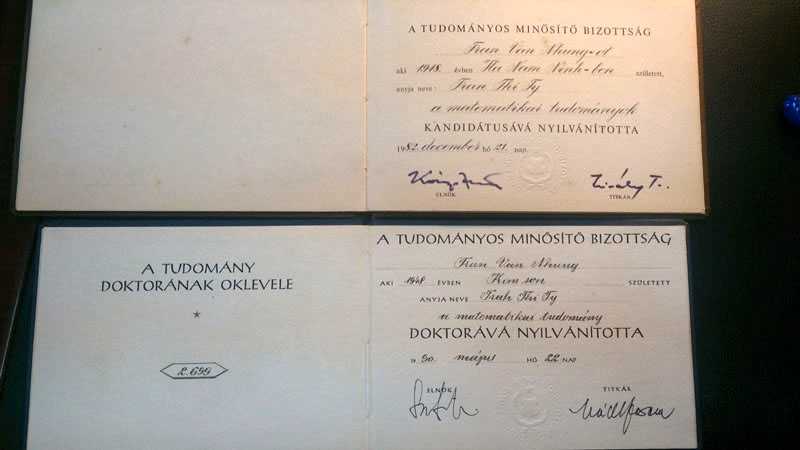 A TUDOMÁNYOS MINŐSÍTŐ BIZOTTSÁG
Tran Van Nhung-ot
aki 1948. évben Ha Nam Ninh-ben született,
anyja neve: Tran Thi Ty
a matematikai tudományok
KANDIDÁTUSÁVÁ NYILVÁNÍTOTTA
1982. december hó 21. nap.
ELNÖK TITKÁR
A TUDOMÁNY
DOKTORÁNAK OKLEVELE
2.699
A TUDOMÁNYOS MINŐSÍTŐ BIZOTTSÁG
Tran Van Nhung
AKI 1948 ÉVBEN Kim son SZÜLETETT
ANYJA NEVE Trah Thi Ty
a matematikai tudomány
DOKTORÁVÁ NYILVÁNÍTOTTA
19 90. május HÓ 22 NAP
ELNÖK TITKÁR